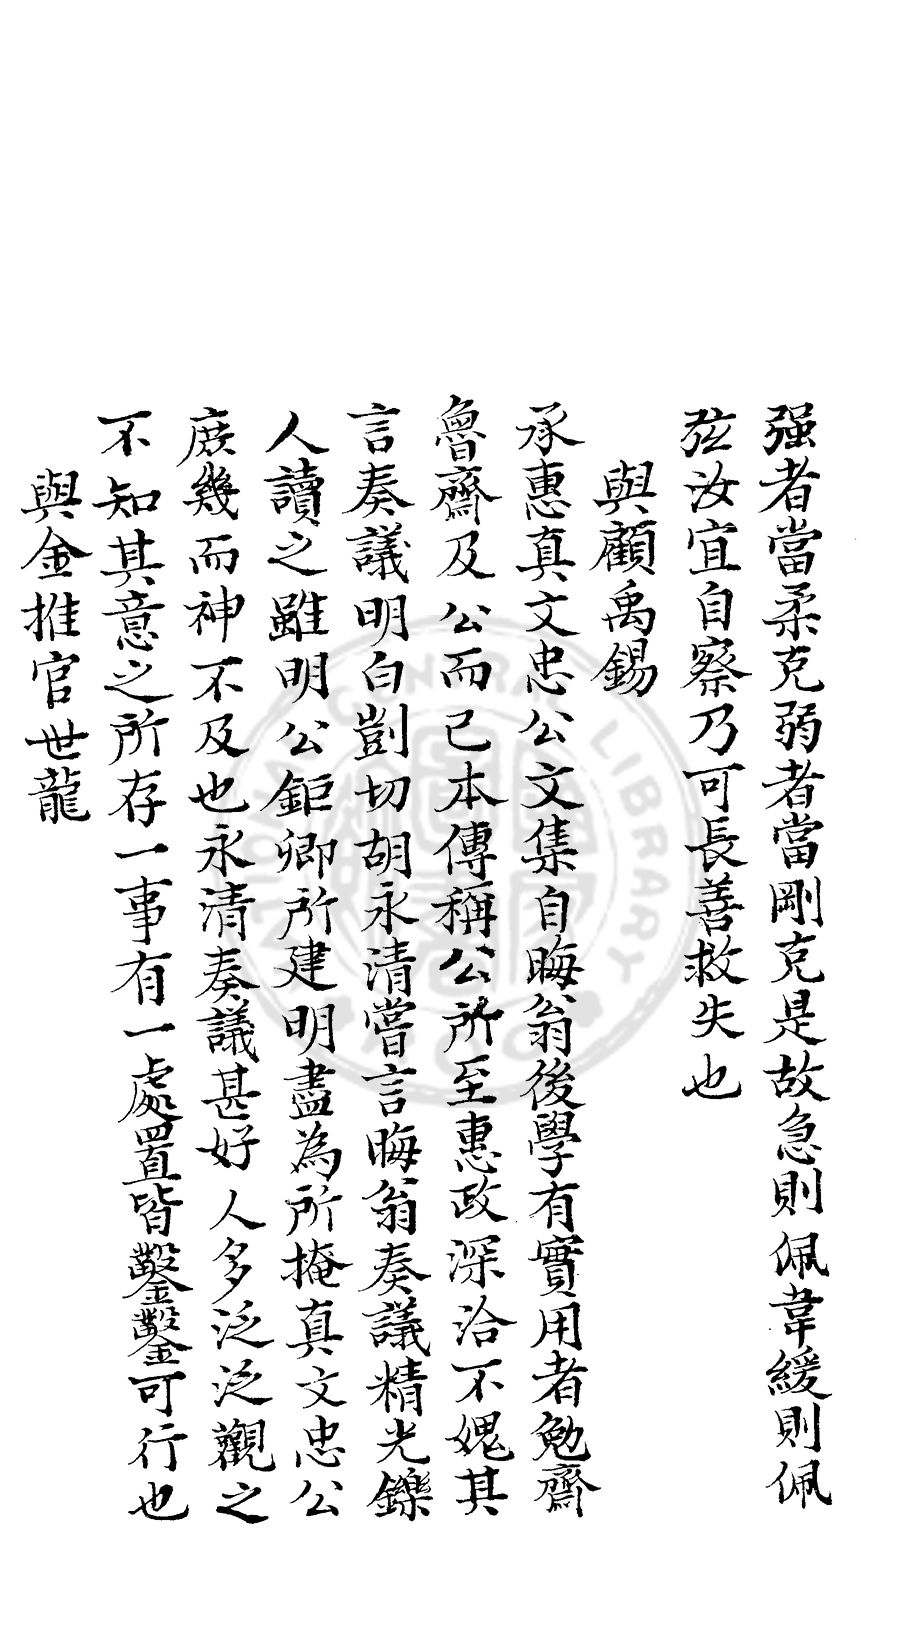 强者當柔克弱者當剛克是故急則佩韋緩則佩
弦汝宜自察乃可長善救失也
與顧禹錫
承惠真文忠公文集自晦翁後學有實用者勉齋
魯齋及公而已本傳稱公所至惠政深洽不媿其
言奏議明白剴切胡永清嘗言晦翁奏議精光鑠
人讀之雖明公鉅卿所建明盡為所掩真文忠公
庶幾而神不及也永清奏議甚好人多泛泛觀之
不知其意之所存一事有一處置皆鑿鑿可行也
與金推官世龍